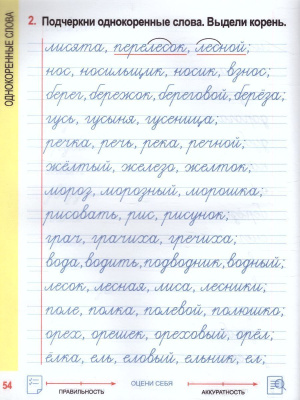 ОДНОКОРЕННЫЕ СЛОВА
2. Подчеркни однокоренные слова. Выдели корень.
лисята, перелесок, лесной;
нос, носильщик, носик, взнос;
берег, бережок, береговой, берёза;
гусь, гусыня, гусеница;
речка, речь, река, речной;
жёлтый, железо, желток;
мороз, морозный, морошка;
рисовать, рис, рисунок;
грач, грачиха, гречиха;
вода, водить, подводник, водный;
лесок, лесная, лиса, лесники;
поле, полка, полевой, полюшко;
орех, орешек, ореховый, орёл;
ёлка, ель, еловый, ельник, ел;
54
ОЦЕНИ СЕБЯ
ПРАВИЛЬНОСТЬ
АККУРАТНОСТЬ